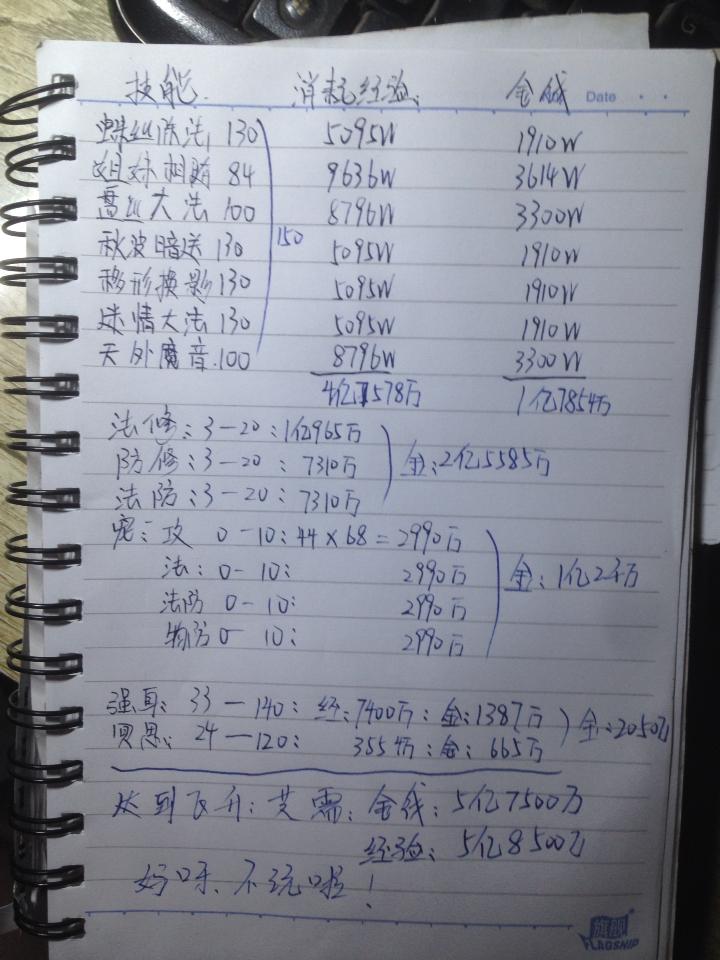 技能 消耗经验: 金钱 Date
蛛丝阵法 130 5095W 1910W
姐妹相随 84 9636W 3614W
盘丝大法 100 8796W 3300W
秋波暗送 130 150 5095W 1910W
移形换影 130 5095W 1910W
迷情大法 130 5095W 1910W
天外魔音 100 8796W 3300W
4亿7578万 1亿7854万
法修: 3—20: 1亿965万
防修: 3—20: 7310万 金:2亿5585万
法防: 3—20: 7310万
宠: 攻 0—10: 44×68=2990万
法: 0—10: 2990万 金:1亿2千万
法防 0—10: 2990万
物防 0—10: 2990万
强身: 33—140: 经:7400万: 金:1387万 金:2050万
冥思: 24—120: 3554万: 金: 665万
达到飞升: 共需: 金钱: 5亿7500万
经验: 5亿8500万
妈呀, 不玩啦!
旗舰
FLAGSHIP